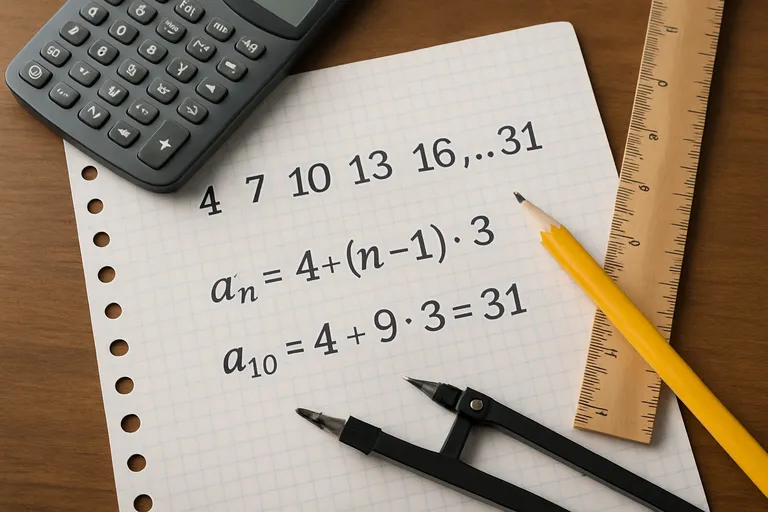 4 7 10 13 16,..31
aₙ = 4+(n−1)·3
a₁₀ = 4+9·3=31